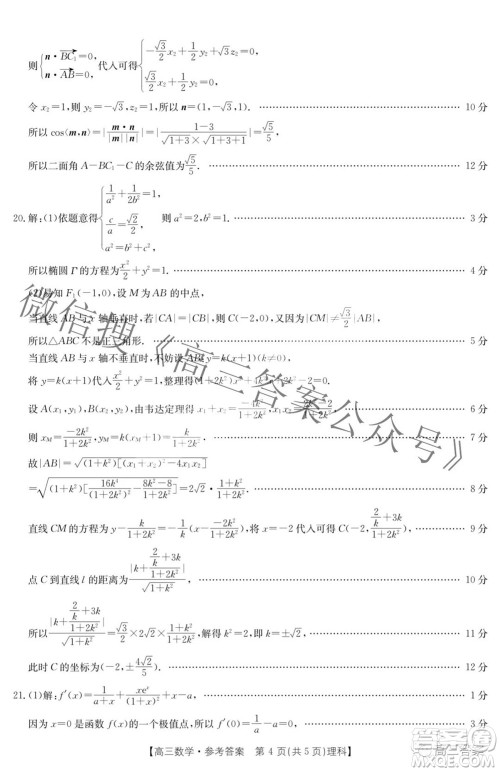 则{n·BC₁=0, n·AB=0, 代入可得{-√3/2 x₂+1/2 y₂+√3 z₂=0, √3/2 x₂+1/2 y₂=0,
令 x₂=1,则 y₂=-√3,z₂=1,所以 n=(1,-√3,1). 10 分
所以 cos⟨m,n⟩=|m·n/|m||n||=|(1-3)/(√(1+3)×√(1+3+1))|=√5/5,
所以二面角 A-BC₁-C 的余弦值为√5/5. 12 分
20.解:(1)依题意得{1/a²+1/(2b²)=1, c/a=√2/2, a²=b²+c², 则 a²=2,b²=1. 3 分
所以椭圆 Γ 的方程为x²/2+y²=1. 4 分
(2)易知 F₁(-1,0),设 M 为 AB 的中点,
当直线 AB 与 x 轴垂直时,若|CA|=|CB|,则 C(-2,0),又因为|CM|≠√3/2|AB|,
所以△ABC 不是正三角形. 5 分
当直线 AB 与 x 轴不垂直时,不妨设 AB:y=k(x+1)(k≠0),
将 y=k(x+1)代入x²/2+y²=1,整理得(1+2k²)x²
设 A(x₁,y₁),B(x₂,y₂),由韦达定理得 x₁+x₂=-4k²/(1+2k²), 6 分
则 x_M=-2k²/(1+2k²),y_M=k(x_M+1)=k/(1+2k²). 7 分
故|AB|=√((1+k²)[(x₁+x₂)²-4x₁x₂])
=√((1+k²)[16k⁴/(1+2k²)²-(8k²-8)/(1+2k²)])=2√2·(1+k²)/(1+2k²). 8 分
直线 CM 的方程为 y-k/(1+2k²)=-1/k(x+2k²/(1+2k²)),将 x=-2 代入可得 C(-2,(2/k+3k)/(1+2k²)). 9 分
点 C 到直线 l 的距离为|k+(2/k+3k)/(1+2k²)|/√(1+k²), 10 分
所以|k+(2/k+3k)/(1+2k²)|/√(1+k²)=√3/2×2√2×(1+k²)/(1+2k²),解得 k²=2,即 k=±√2, 11 分
此时 C 的坐标为(-2,±4√2/5). 12 分
21.(1)解:f′(x)=1/(a+x)+xeˣ/(1+x)²+x-a, 1 分
因为 x=0 是函数 f(x)的极值点,所以 f′(0)=1/a-a=0, 2 分
【高三数学·参考答案 第 4 页(共 5 页)理科】
微信搜《高三答案公众号》